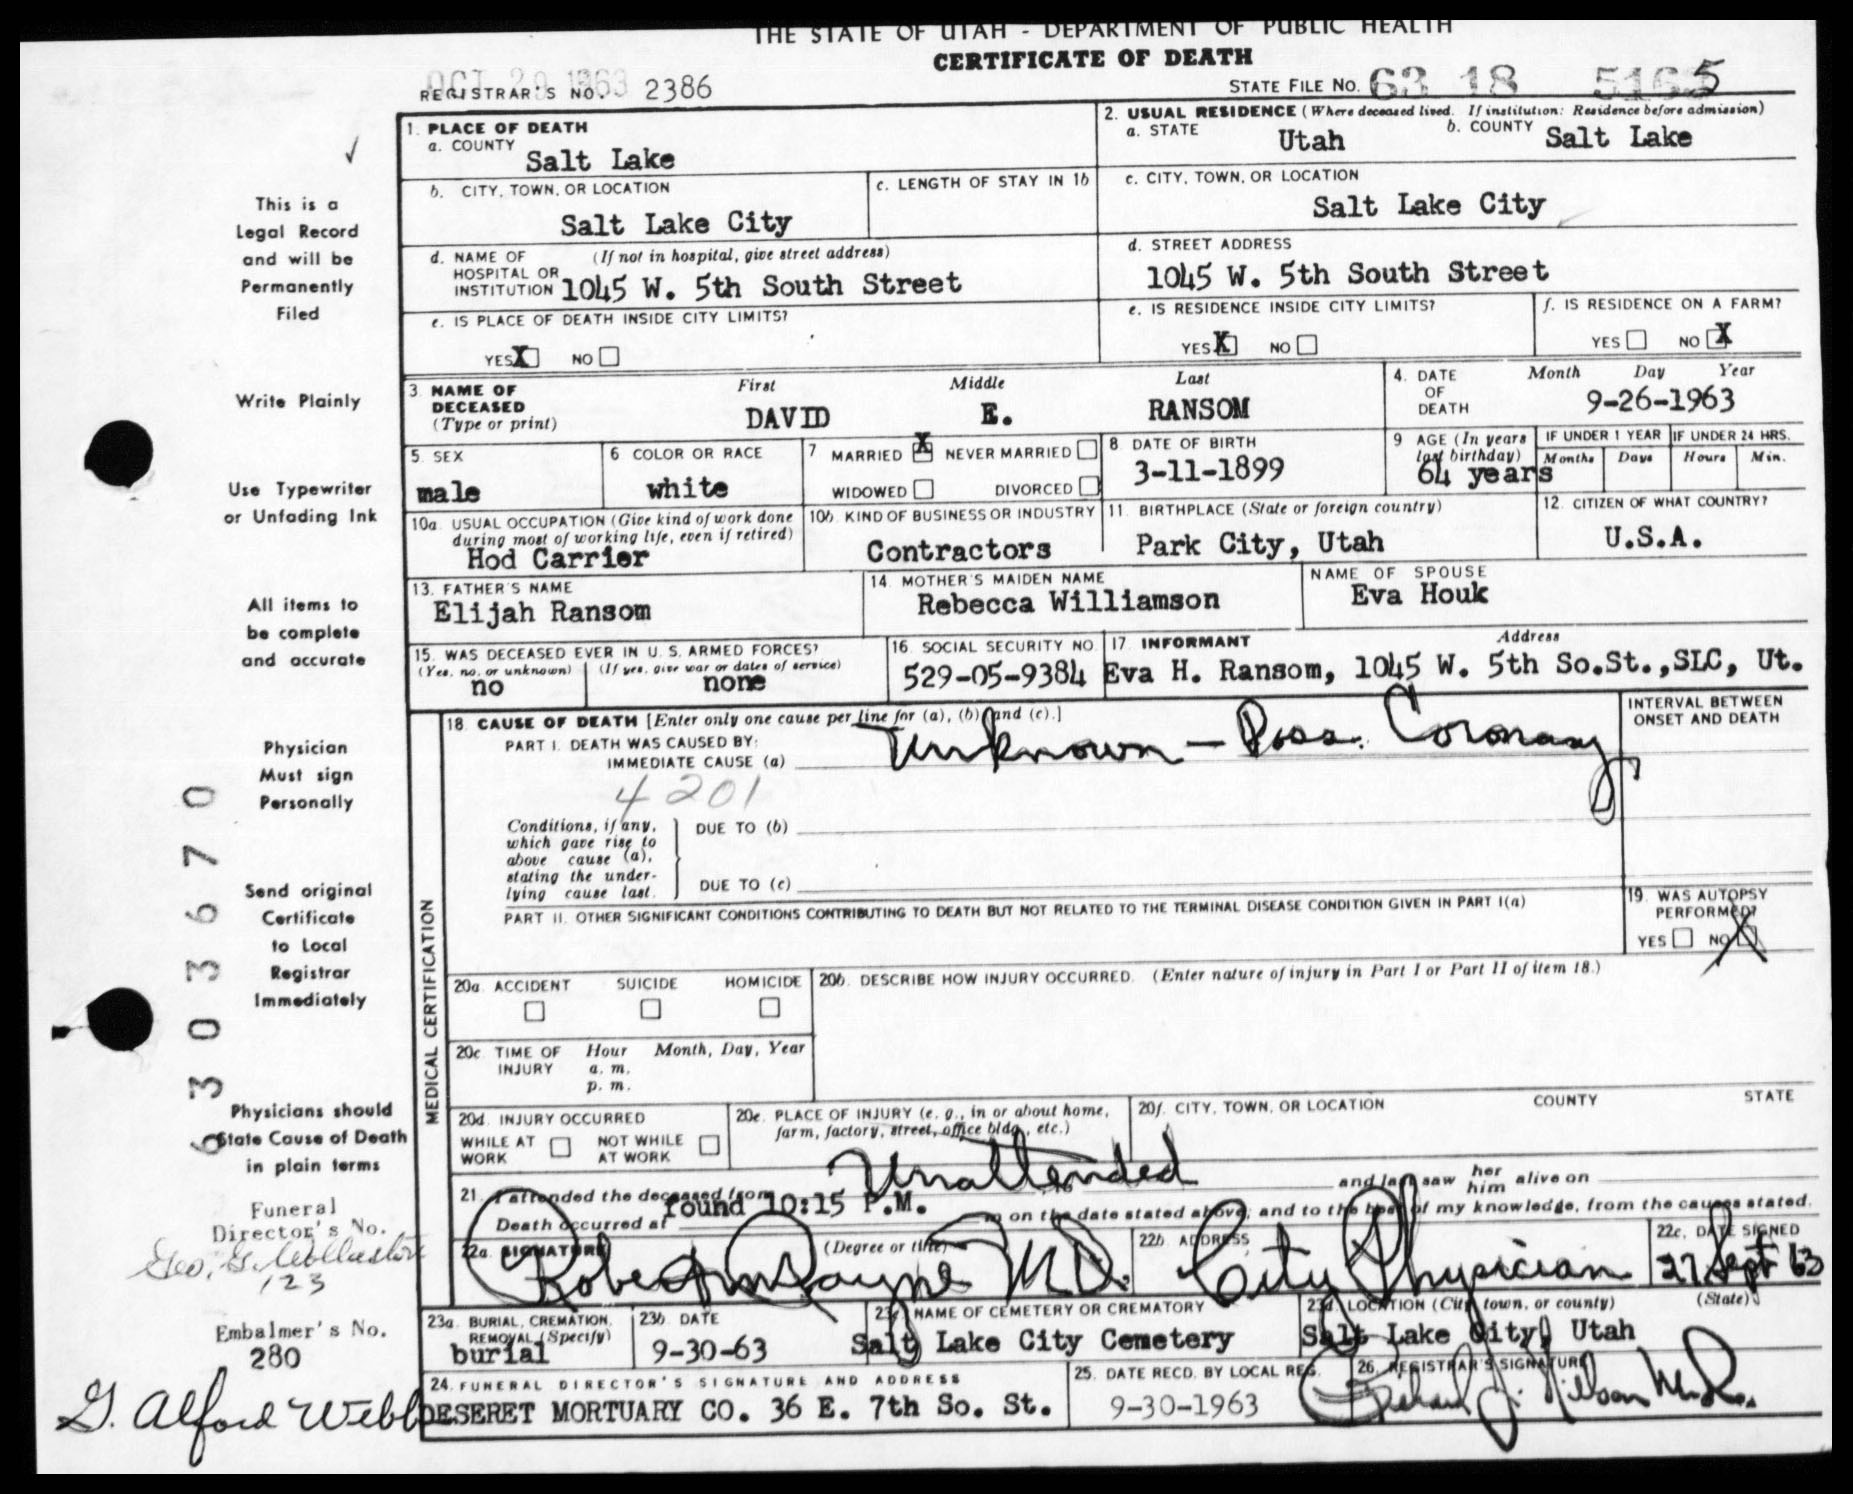 THE STATE OF UTAH - DEPARTMENT OF PUBLIC HEALTH
CERTIFICATE OF DEATH
OCT 29 1963
REGISTRAR'S NO. 2386
STATE FILE NO. 63 18 5165
This is a
Legal Record
and will be
Permanently
Filed
Write Plainly
Use Typewriter
or Unfading Ink
All items to
be complete
and accurate
Physician
Must sign
Personally
Send original
Certificate
to Local
Registrar
Immediately
Physicians should
State Cause of Death
in plain terms
Funeral
Director's No.
Geo. G. Wollaston
123
Embalmer's No.
280
G. Alford Webb
6303670
1. PLACE OF DEATH
a. COUNTY Salt Lake
b. CITY, TOWN, OR LOCATION Salt Lake City
c. LENGTH OF STAY IN 1b
d. NAME OF HOSPITAL OR INSTITUTION (If not in hospital, give street address)
1045 W. 5th South Street
e. IS PLACE OF DEATH INSIDE CITY LIMITS?
YES X NO
2. USUAL RESIDENCE (Where deceased lived. If institution: Residence before admission)
a. STATE Utah b. COUNTY Salt Lake
c. CITY, TOWN, OR LOCATION
Salt Lake City
d. STREET ADDRESS
1045 W. 5th South Street
e. IS RESIDENCE INSIDE CITY LIMITS?
YES X NO
f. IS RESIDENCE ON A FARM?
YES NO X
3. NAME OF DECEASED (Type or print)
First Middle Last
DAVID E. RANSOM
4. DATE OF DEATH Month Day Year
9-26-1963
5. SEX
male
6 COLOR OR RACE
white
7 MARRIED X NEVER MARRIED
WIDOWED DIVORCED
8. DATE OF BIRTH
3-11-1899
9 AGE (In years last birthday)
64 years
IF UNDER 1 YEAR IF UNDER 24 HRS.
Months Days Hours Min.
10a. USUAL OCCUPATION (Give kind of work done during most of working life, even if retired)
Hod Carrier
10b. KIND OF BUSINESS OR INDUSTRY
Contractors
11. BIRTHPLACE (State or foreign country)
Park City, Utah
12. CITIZEN OF WHAT COUNTRY?
U.S.A.
13. FATHER'S NAME
Elijah Ransom
14. MOTHER'S MAIDEN NAME
Rebecca Williamson
NAME OF SPOUSE
Eva Houk
15. WAS DECEASED EVER IN U. S. ARMED FORCES?
(Yes, no, or unknown) (If yes, give war or dates of service)
no none
16. SOCIAL SECURITY NO.
529-05-9384
17. INFORMANT Address
Eva H. Ransom, 1045 W. 5th So.St.,SLC, Ut.
MEDICAL CERTIFICATION
18. CAUSE OF DEATH [Enter only one cause per line for (a), (b), and (c).]
PART I. DEATH WAS CAUSED BY:
IMMEDIATE CAUSE (a) Unknown - Poss. Coronary
4201
INTERVAL BETWEEN ONSET AND DEATH
Conditions, if any, which gave rise to above cause (a), stating the underlying cause last.
DUE TO (b)
DUE TO (c)
PART II. OTHER SIGNIFICANT CONDITIONS CONTRIBUTING TO DEATH BUT NOT RELATED TO THE TERMINAL DISEASE CONDITION GIVEN IN PART I(a)
19. WAS AUTOPSY PERFORMED?
YES NO X
20a. ACCIDENT SUICIDE HOMICIDE
20b. DESCRIBE HOW INJURY OCCURRED. (Enter nature of injury in Part I or Part II of item 18.)
20c. TIME OF INJURY Hour Month, Day, Year
a. m.
p. m.
20d. INJURY OCCURRED
WHILE AT WORK NOT WHILE AT WORK
20e. PLACE OF INJURY (e. g., in or about home, farm, factory, street, office bldg., etc.)
20f. CITY, TOWN, OR LOCATION COUNTY STATE
21. I attended the deceased from Unattended to and last saw her him alive on
Death occurred at found 10:15 P.M. m on the date stated above; and to the best of my knowledge, from the causes stated.
22a. SIGNATURE (Degree or title)
Robert M Dayne MD.
22b. ADDRESS
City Physician
22c. DATE SIGNED
27 Sept 63
23a. BURIAL, CREMATION, REMOVAL (Specify)
burial
23b. DATE
9-30-63
23c. NAME OF CEMETERY OR CREMATORY
Salt Lake City Cemetery
23d. LOCATION (City, town, or county) (State)
Salt Lake City, Utah
24. FUNERAL DIRECTOR'S SIGNATURE AND ADDRESS
DESERET MORTUARY CO. 36 E. 7th So. St.
25. DATE RECD. BY LOCAL REG.
9-30-1963
26. REGISTRAR'S SIGNATURE
J. Nilson M.D.